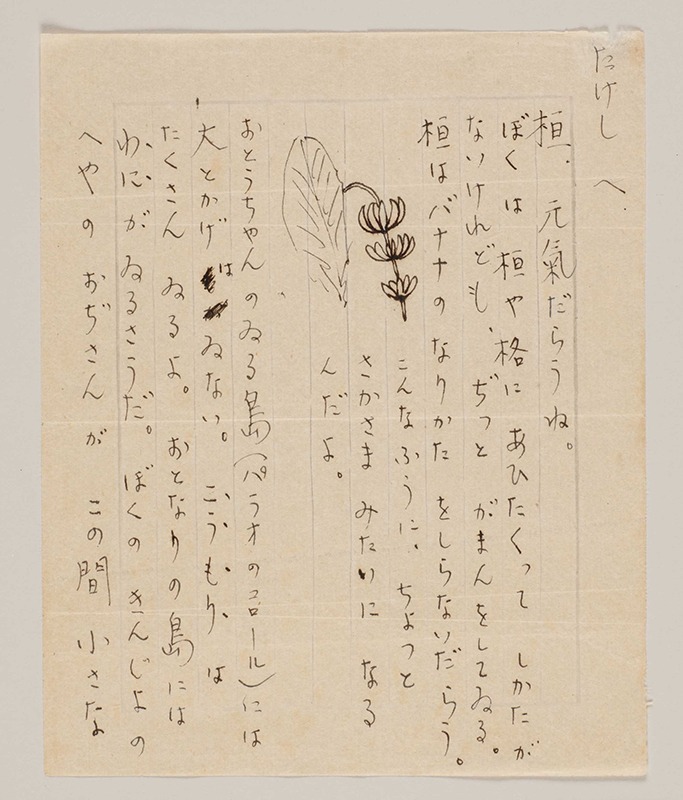 たけしへ
桓、元氣だらうね。
ぼくは桓や格にあひたくってしかたが
ないけれども、ぢっとがまんをしてゐる。
桓はバナナのなりかたをしらないだらう。
こんなふうに、ちょっと
さかさまみたいになる
んだよ。
おとうちゃんのゐる島（パラオのコロール）には
大とかげはゐない。こうもりは
たくさんゐるよ。おとなりの島には
わにがゐるさうだ。ぼくのきんじよの
へやのおぢさんがこの間小さな